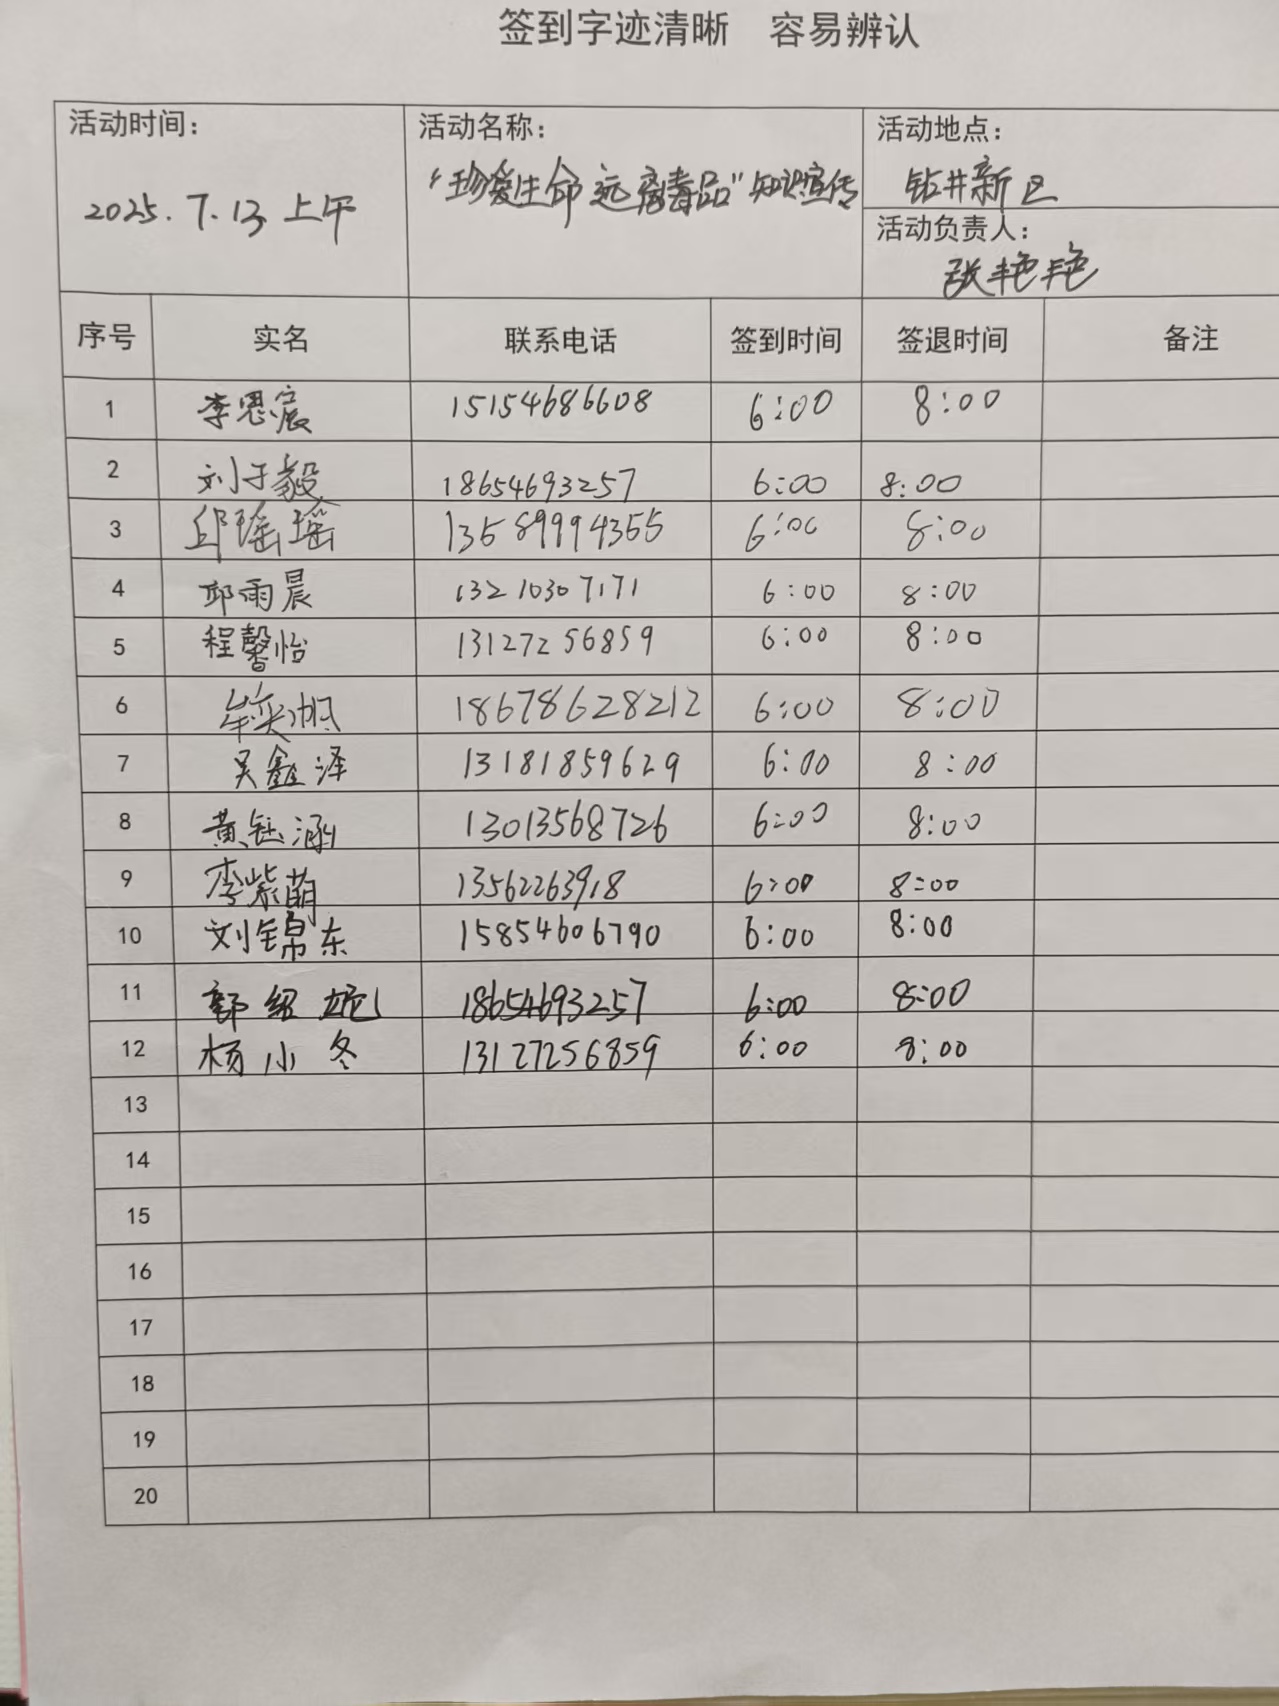 签到字迹清晰 容易辨认
活动时间: 活动名称: 活动地点:
2025.7.13 上午 "珍爱生命 远离毒品"知识宣传 钻井新区
活动负责人:
张艳艳
序号 实名 联系电话 签到时间 签退时间 备注
1 李思宸 15154686608 6:00 8:00
2 刘子毅 18654693257 6:00 8:00
3 邱瑶瑶 13589994355 6:00 8:00
4 邱雨晨 13210307171 6:00 8:00
5 程馨怡 13127256859 6:00 8:00
6 18678628212 6:00 8:00
7 吴鑫泽 13181859629 6:00 8:00
8 黄钰涵 13013568726 6:00 8:00
9 李紫萌 13562263918 6:00 8:00
10 刘锦东 15854606790 6:00 8:00
11 18654693257 6:00 8:00
12 杨小冬 13127256859 6:00 8:00
13
14
15
16
17
18
19
20